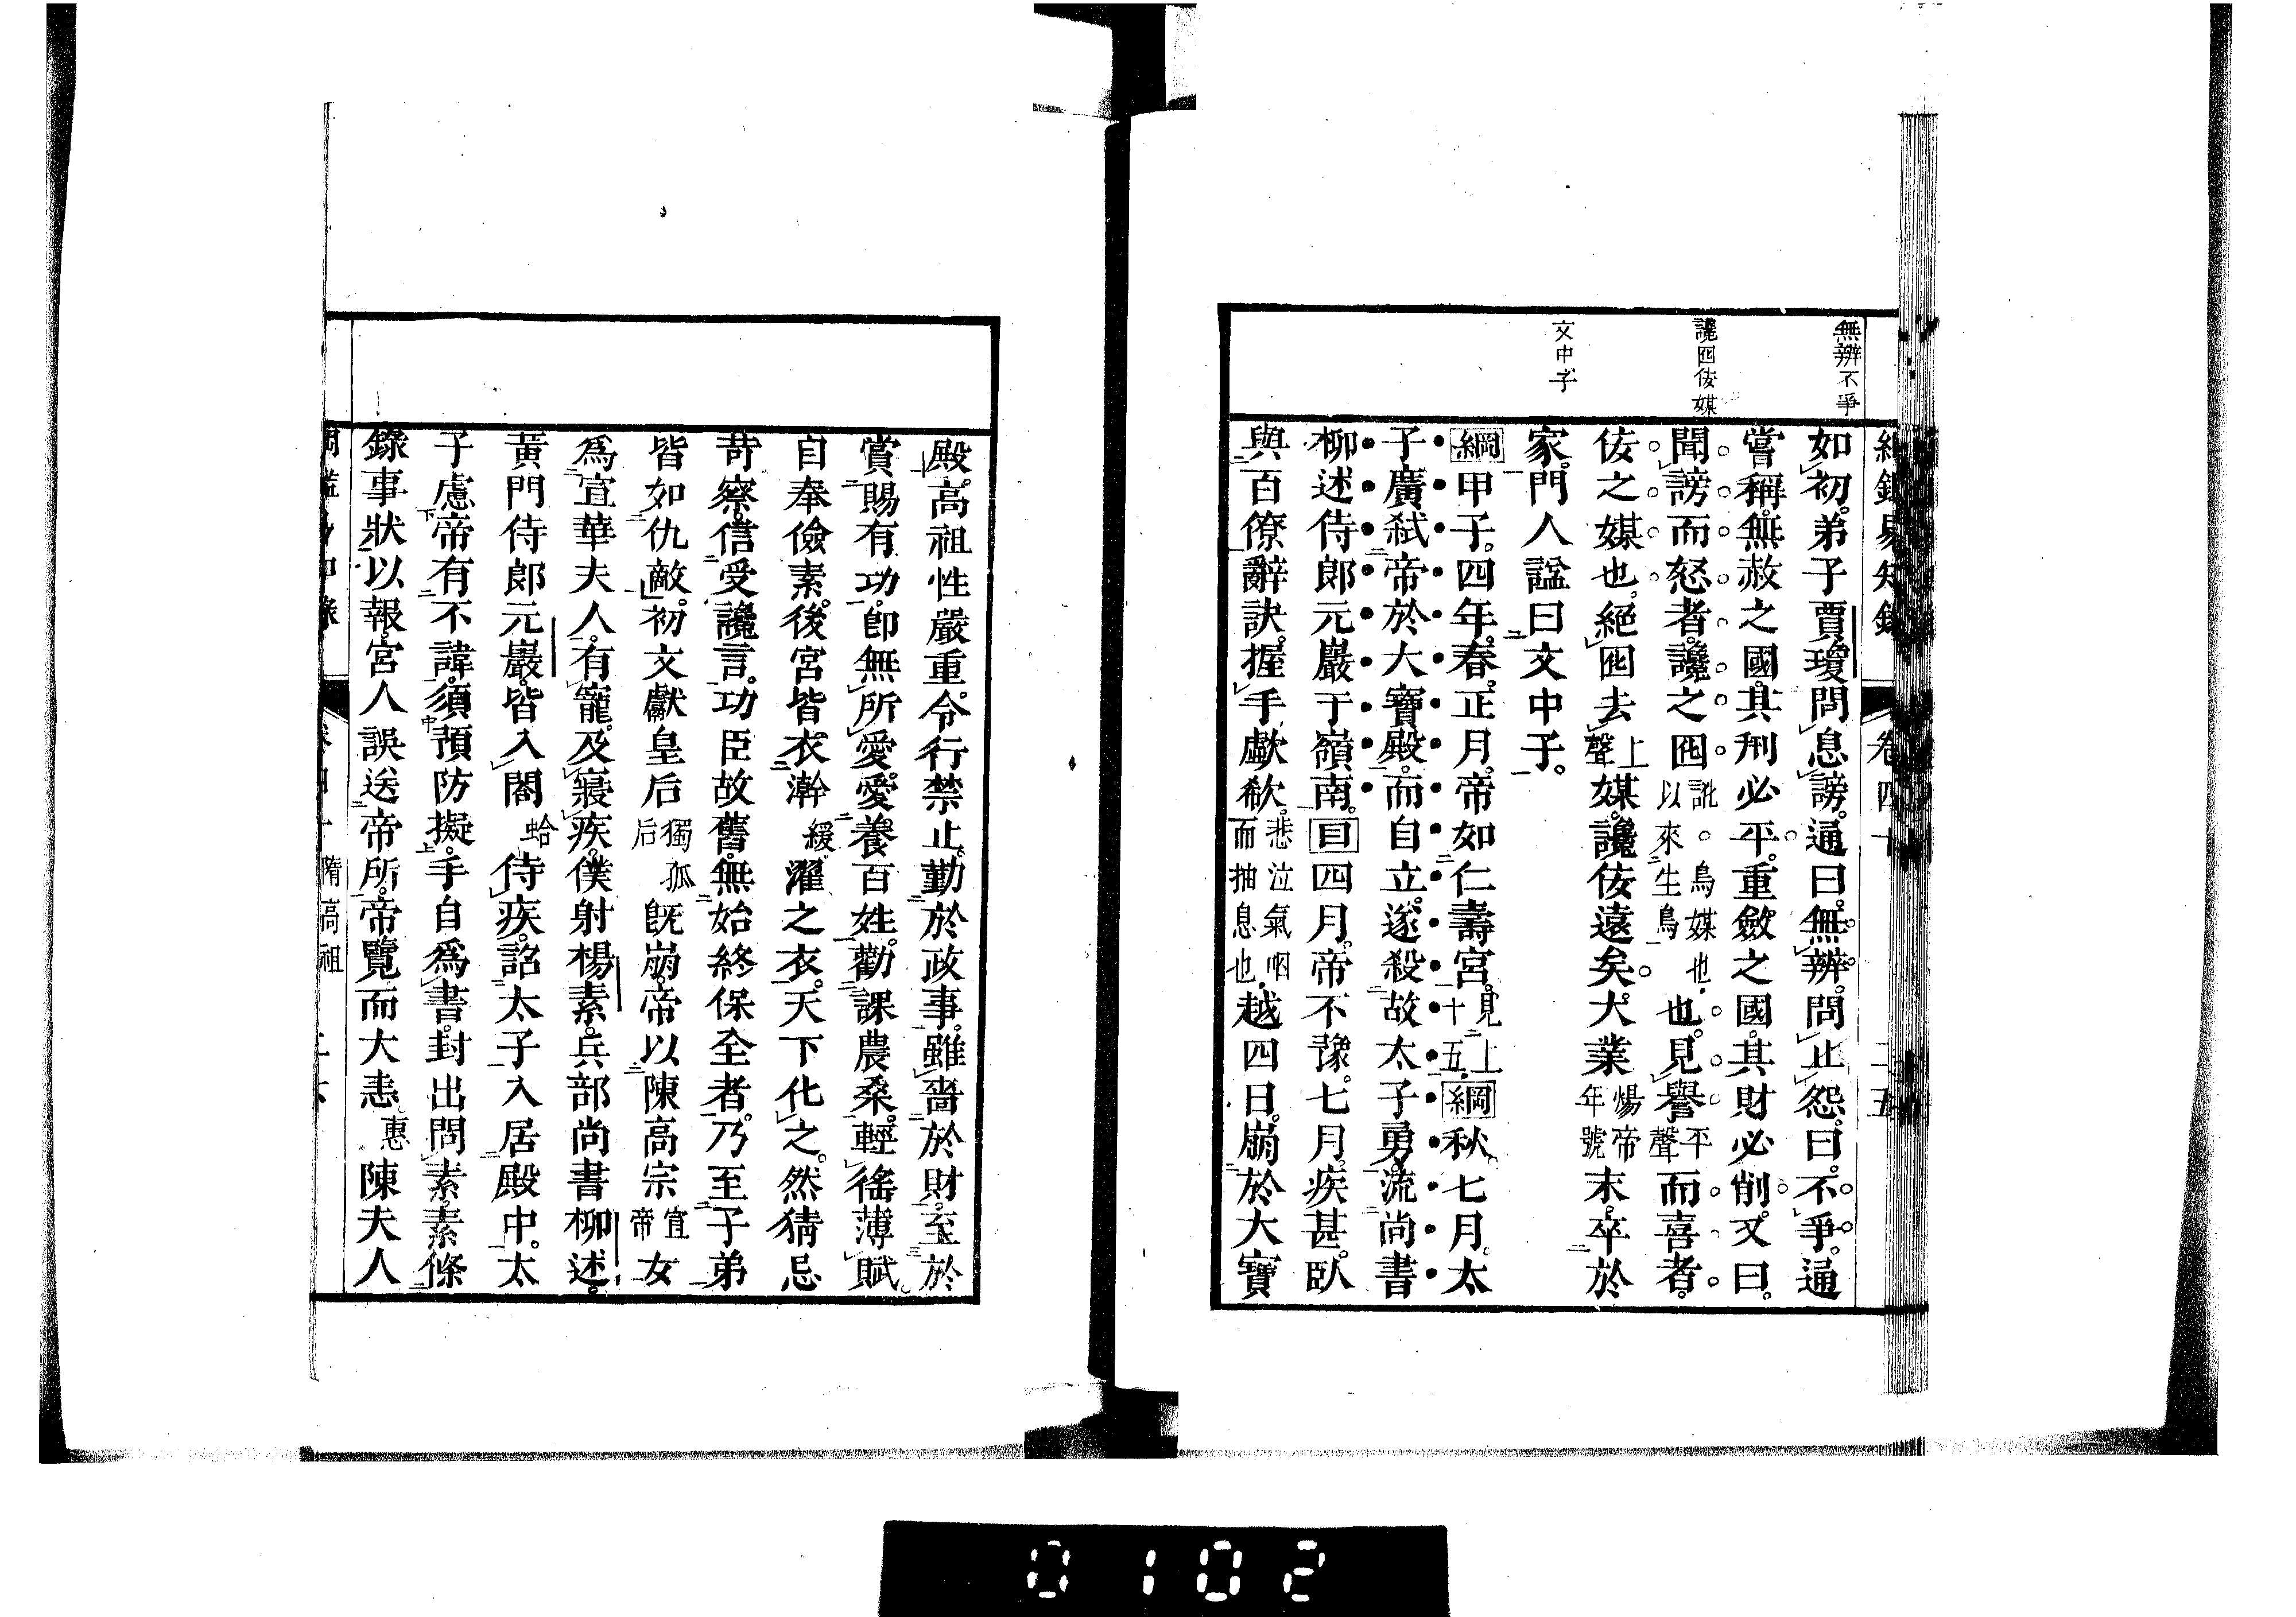 無辨不爭
讒囮佞媒
文中子
卷四十
二五
如初。弟子賈瓊問息謗。通曰。無辨。問止怨。曰。不爭。通
嘗稱。無赦之國。其刑必平。重斂之國。其財必削。又曰。
聞謗而怒者。讒之囮訛。鳥媒也。以來生鳥也。見譽平聲而喜者。
佞之媒也。絕囮去上聲媒。讒佞遠矣。大業煬帝年號末。卒於
家。門人謚曰文中子。
綱甲子。四年。春。正月。帝如仁壽宮。見上十五。綱秋。七月。太
子廣弒帝於大寶殿。而自立。遂殺故太子勇。流尚書
柳述侍郎元巖于嶺南。目四月。帝不豫。七月。疾甚。臥
與百僚辭訣。握手歔欷。悲泣氣咽而抽息也。越四日。崩於大寶
殿。高祖性嚴重。令行禁止。勤於政事。雖嗇於財。至於
賞賜有功。卽無所愛。愛養百姓。勸課農桑。輕徭薄賦。
自奉儉素。後宮皆衣澣緩濯之衣。天下化之。然猜忌
苛察。信受讒言。功臣故舊。無始終保全者。乃至子弟
皆如仇敵。初文獻皇后獨孤后旣崩。帝以陳高宗宣帝女
爲宣華夫人。有寵。及寢疾。僕射楊素。兵部尚書柳述。
黃門侍郎元巖。皆入閤蛤侍疾。詔太子入居殿中。太
子慮帝有不諱。須預防擬。手自爲書。封出問素。素條
錄事狀以報。宮人誤送帝所。帝覽而大恚惠陳夫人
隋高祖
0102